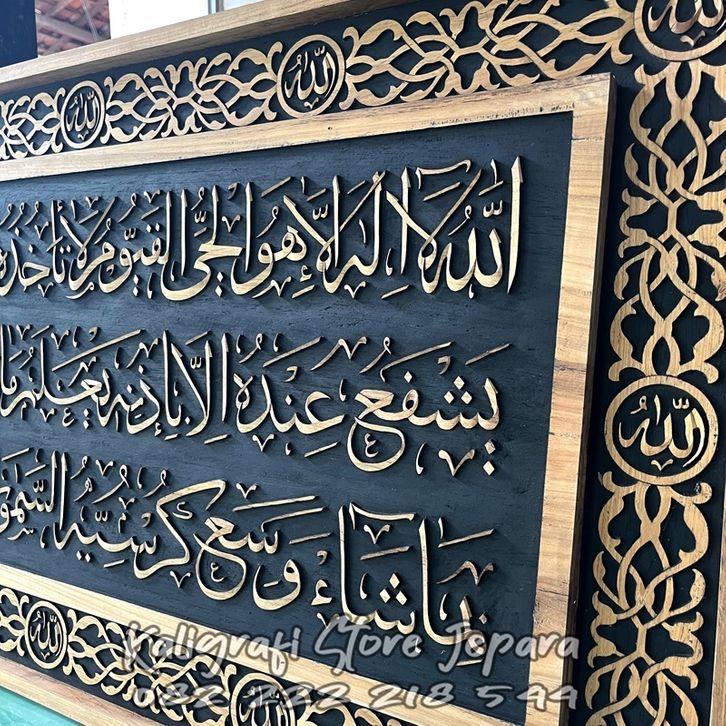 الله
الله
الله
اللَّهُ لَا إِلَٰهَ إِلَّا هُوَ الْحَيُّ الْقَيُّومُ لَا تَأْخُذُهُ
يَشْفَعُ عِنْدَهُ إِلَّا بِإِذْنِهِ يَعْلَمُ مَا
الله
بِمَا شَاءَ وَسِعَ كُرْسِيُّهُ السَّمٰوٰ
الله
الله
Kaligrafi Store Jepara
082 1322 218 544